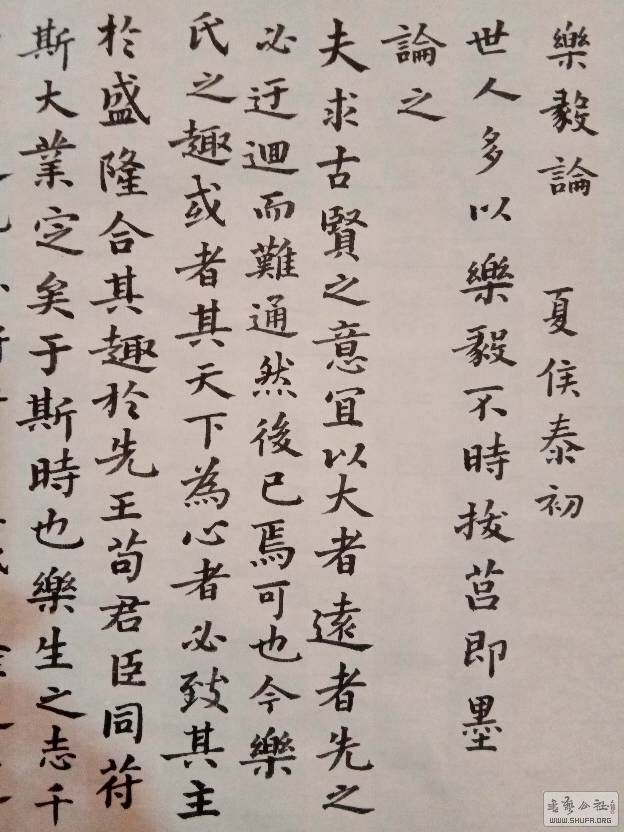 樂毅論 夏侯泰初
世人多以樂毅不時拔莒即墨
論之
夫求古賢之意宜以大者遠者先之
必迂迴而難通然後已焉可也今樂
氏之趣或者其天下為心者必致其主
於盛隆合其趣於先王苟君臣同符
斯大業定矣于斯時也樂生之志千
WWW.SHUFA.ORG